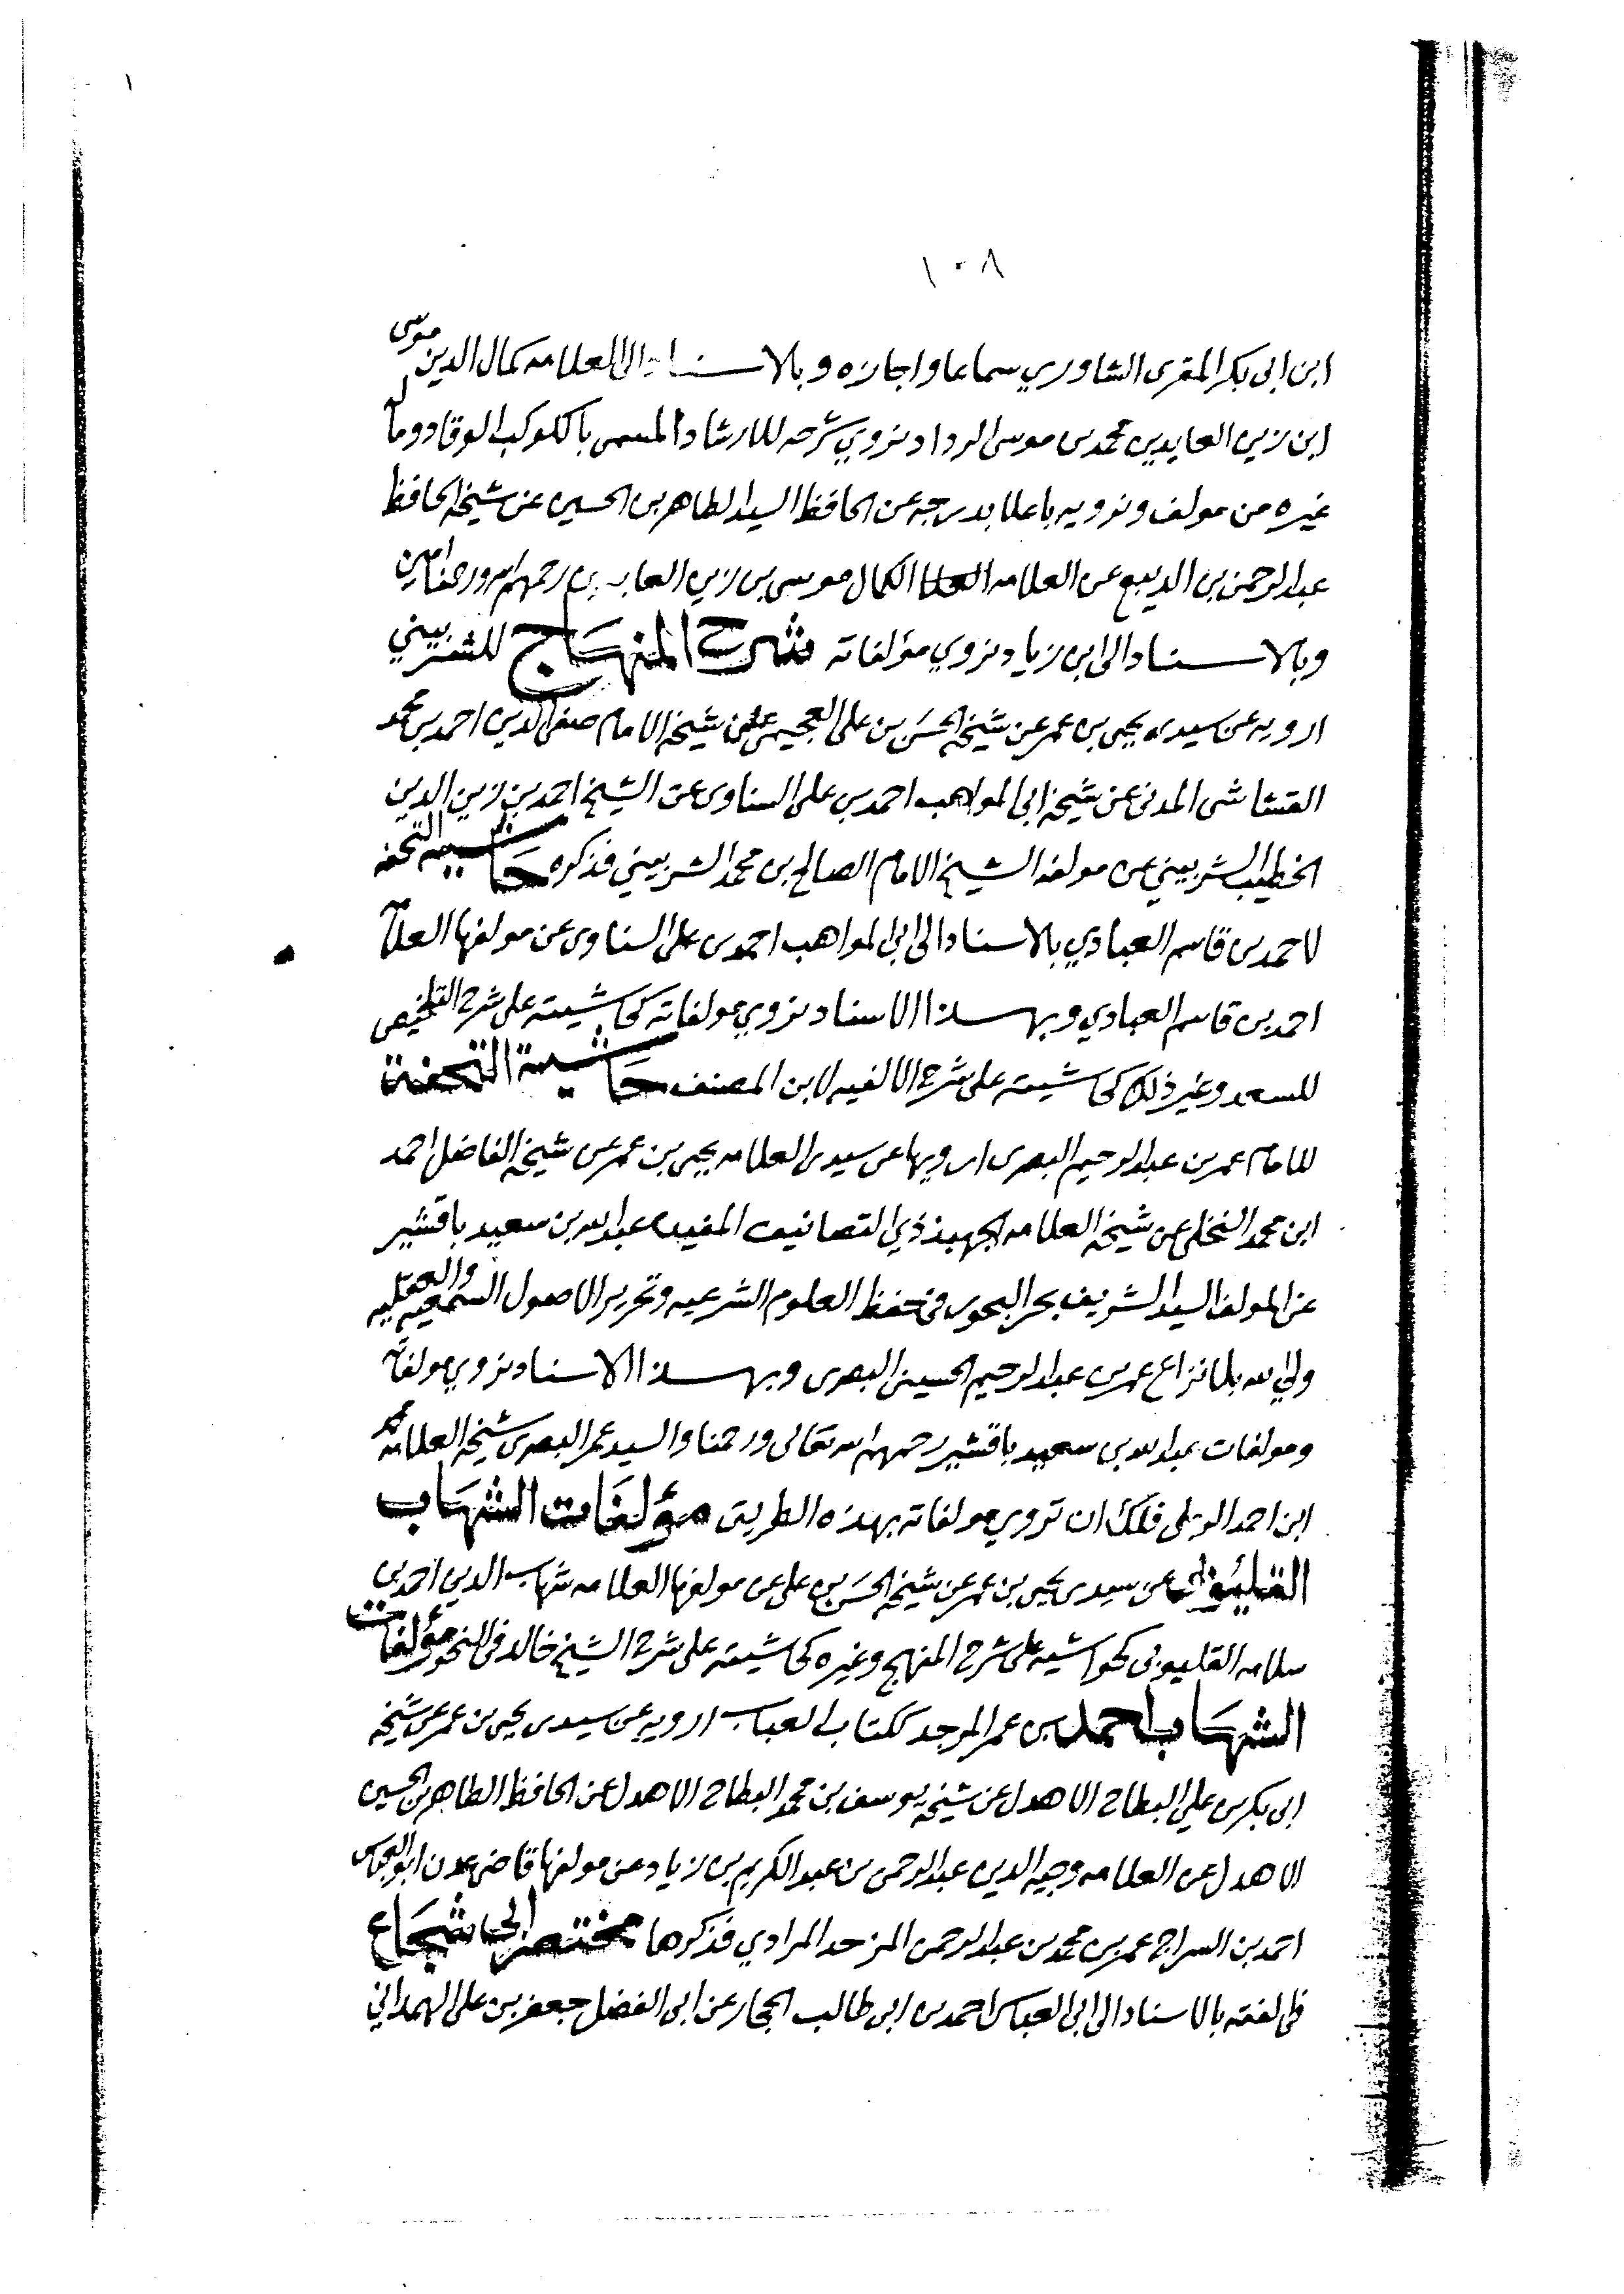 ١٠٨
ابن ابى بكر المقرى الشاوري سماعا واجازه وبالاسناد الى العلامه كمال الدين موسى
ابن زين العابدين محمد بن موسى الرداد نروي شرحه للارشاد المسمى بالكوكب الوقاد وما
غيره من مولف ونرويه باعلا بدرجه عن الحافظ السيد الطاهر بن الحسين عن شيخه الحافظ
عبد الرحمن بن الديبع عن العلامه الكمال موسى بن زين العابدين رحمهم الله ورحمنا امين
وبالاسناد الى ابن زياد نروي مؤلفاته شرح المنهاج للشربيني
ارويه عن سيدى يحيى بن عمر عن شيخه الحسن بن على العجيمى عن شيخه الامام صفى الدين احمد بن محمد
القشاشى المدنى عن شيخه ابى المواهب احمد بن على السناوى عن الشيخ احمد بن زين الدين
الخطيب الشربيني عن مولفه الشيخ الامام الصالح بن محمد الشربيني فذكره حاشيه التحفه
لاحمد بن قاسم العبادي بالاسناد الى ابى المواهب احمد بن على السناوى عن مولفها العلا
احمد بن قاسم العبادي وبهذا الاسناد نروي مولفاته كحاشيته على شرح التلخيص
للسعد وغير ذلك كحاشيته على شرح الالفيه لابن المصنف حاشية التحفة
للامام عمر بن عبد الرحيم البصرى ارويها عن سيدى العلامه يحيى بن عمر عن شيخه الفاضل احمد
ابن محمد النخلى عن شيخه العلامه الجهبذ ذي التصانيف المفيده عبد الله بن سعيد باقشير
عن المولف السيد الشريف بحر البحور فى حفظ العلوم الشرعيه وتحرير الاصول السمعيه والعقليه
ولي الله بلا نزاع عمر بن عبد الرحيم الحسينى البصرى وبهذا الاسناد نروي مولفاته
ومولفات عبد الله بن سعيد باقشير رحمهم الله تعالى ورحمنا والسيد عمر البصرى شيخه العلامه محمد
ابن احمد الرملى فلك ان تروي مولفاته بهذه الطريق مؤلفات الشهاب
القليوبى عن سيدى يحيى بن عمر عن شيخه الحسن بن على عن مولفها العلامه شهاب الدين احمد بن
سلامه القليوبى كحواشيه على شرح المنهج وغيره كحاشيته على شرح الشيخ خالد فى النحو مؤلفات
الشهاب احمد بن عمر المزجد ككتاب العباب ارويه عن سيدى يحيى بن عمر عن شيخه
ابى بكر بن علي البطاح الاهدل عن شيخه يوسف بن محمد البطاح الاهدل عن الحافظ الطاهر بن الحسين
الاهدل عن العلامه وجيه الدين عبد الرحمن بن عبد الكريم بن زياد عن مولفها قاضى عدن ابو العباس
احمد بن السراج عمر بن محمد بن عبد الرحمن المزجد المرادي فذكرها مختصر ابى شجاع
فى الفقه بالاسناد الى ابى العباس احمد بن ابى طالب الحجار عن ابى الفضل جعفر بن على الهمداني